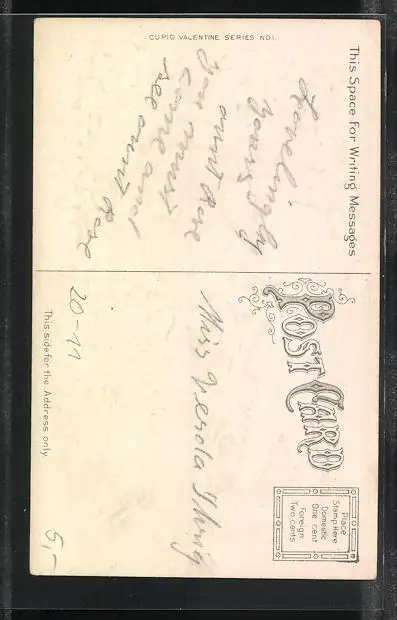 CUPID VALENTINE SERIES NO1.
This Space For Writing Messages
Lovelingly
yours
aunt Rose
you must
come and
see aunt Rose
POST CARD
Place
Stamp Here
Domestic
One cent
Foreign
Two cents
Miss
20-11
This side for the Address only.
5,-